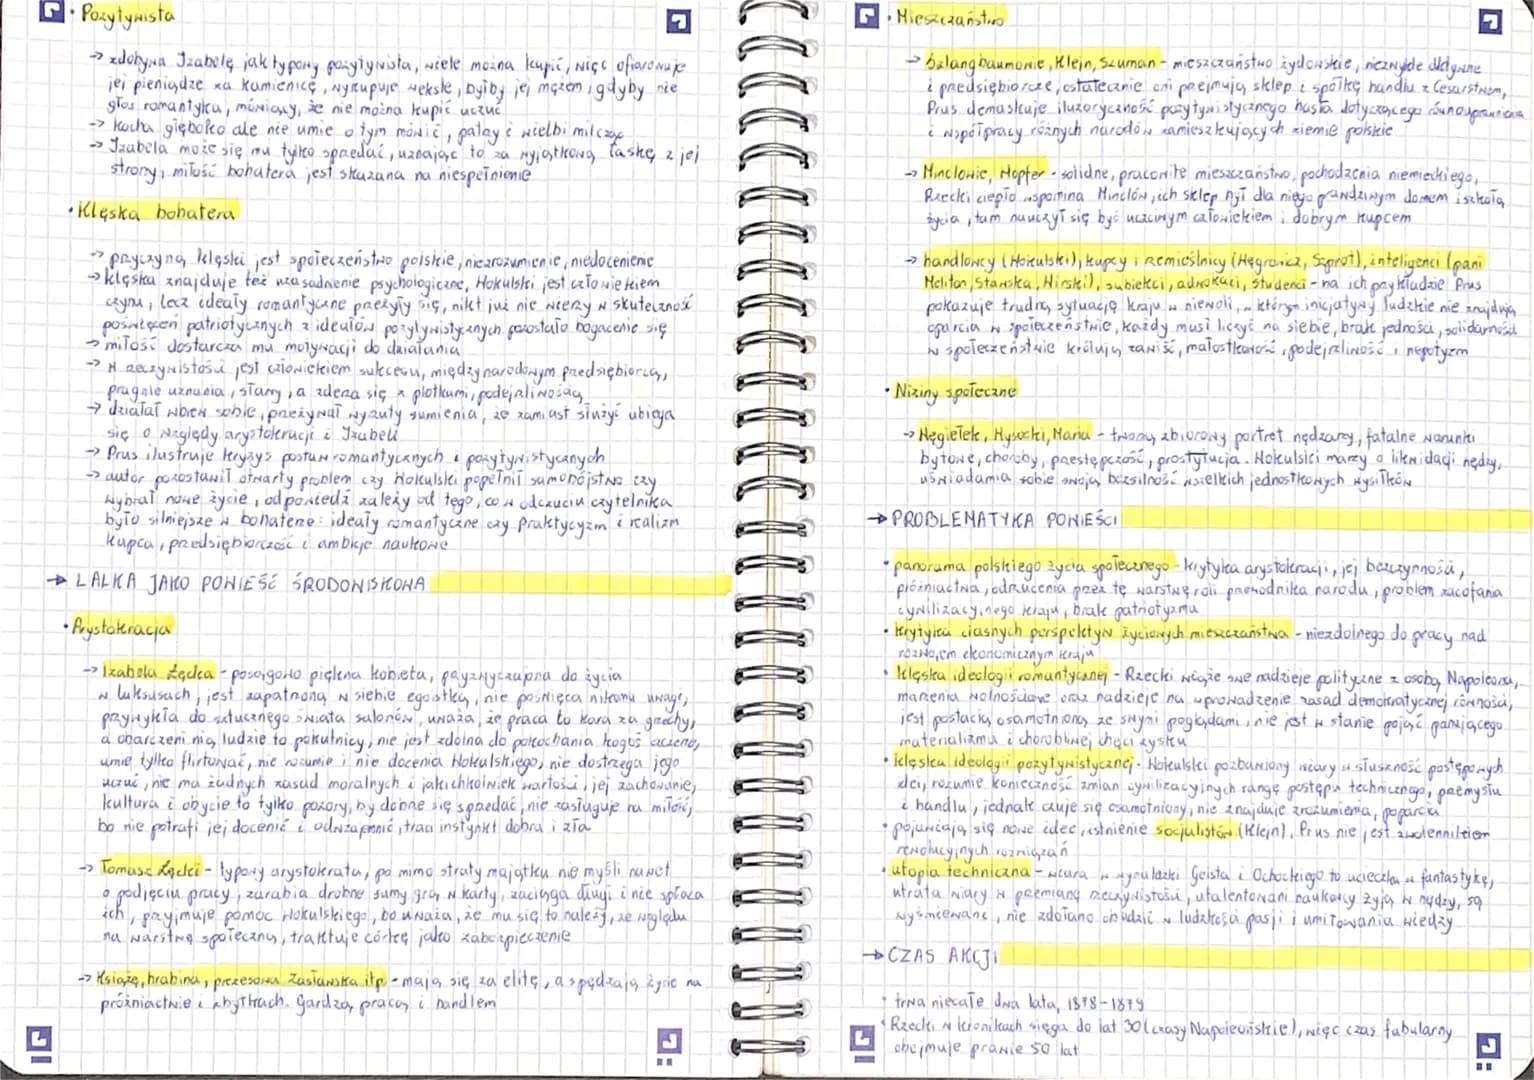 • Pozytywista
→ zdobywa Izabelę jak typowy pozytywista, wiele można kupić, więc ofiarowuje
jej pieniądze za kamienicę, wykupuje weksle, byłby jej mężem, gdyby nie
głos romantyka, mówiący, że nie można kupić uczuć
→ kocha głęboko ale nie umie o tym mówić, pałay i wielbi milcząc
→ Izabela może się mu tylko sprzedać, uznając to za wyjątkową łaskę z jej
strony, miłość bohatera jest skazana na niespełnienie
• Klęska bohatera
→ przyczyną klęski jest społeczeństwo polskie, niezrozumienie, niedocenienie
→ klęska znajduje też uzasadnienie psychologiczne, Wokulski jest człowiekiem
czynu, lecz ideały romantyczne przeżyły się, nikt już nie wierzy w skuteczność
poświęceń patriotycznych z ideałów pozytywistycznych pozostało bogacenie się
→ miłość dostarcza mu motywacji do działania
→ w rzeczywistości jest człowiekiem sukcesu, międzynarodowym przedsiębiorcą,
pragnie uznania, sławy, a zderza się z plotkami, podejrzliwością
→ działał wbrew sobie, przeżywał wyrzuty sumienia, że zamiast służyć ubiega
się o względy arystokracji i Izabeli
→ Prus ilustruje kryzys postaw romantycznych i pozytywistycznych
→ autor pozostawił otwarty problem czy Wokulski popełnił samobójstwo czy
wybrał nowe życie, odpowiedź zależy od tego, co w odczuciu czytelnika
było silniejsze w bohaterze: ideały romantyczne czy praktycyzm i realizm
kupca, przedsiębiorczość i ambicje naukowe
→ LALKA JAKO POWIEŚĆ ŚRODOWISKOWA
• Arystokracja
→ Izabela Łęcka - posągowo piękna kobieta, przyzwyczajona do życia
w luksusach, jest zapatrzoną w siebie egoistką, nie poświęca nikomu uwagi,
przywykła do sztucznego świata salonów, uważa, że praca to kara za grzechy,
a obarczeni nią ludzie to pokutnicy, nie jest zdolna do pokochania kogoś szczerze,
umie tylko flirtować, nie rozumie i nie docenia Wokulskiego, nie dostrzega jego
uczuć, nie ma żadnych zasad moralnych i jakichkolwiek wartości, jej zachowanie,
kultura i obycie to tylko pozory, by dobrze się sprzedać, nie zasługuje na miłość,
bo nie potrafi jej docenić i odwzajemnić, traci instynkt dobra i zła
→ Tomasz Łęcki - typowy arystokrata, po mimo straty majątku nie myśli nawet
o podjęciu pracy, zarabia drobne sumy grą w karty, zaciąga długi i nie spłaca
ich, przyjmuje pomoc Wokulskiego, bo uważa, że mu się to należy, ze względu
na warstwę społeczną, traktuje córkę jako zabezpieczenie
→ Książę, hrabina, prezesowa Zasławska itp - mają się za elitę, a spędzają życie na
próżniactwie i zbytkach. Gardzą pracą i handlem
• Mieszczaństwo
→ Szlangbaumowie, Klejn, Szuman - mieszczaństwo żydowskie, niezwykle aktywne
i przedsiębiorcze, ostatecznie oni przejmują sklep i spółkę handlu z Cesarstwem,
Prus demaskuje iluzoryczność pozytywistycznego hasła dotyczącego równouprawnienia
i współpracy różnych narodów zamieszkujących ziemie polskie
→ Minclowie, Hopfer - solidne, pracowite mieszczaństwo, pochodzenia niemieckiego,
Rzecki ciepło wspomina Minclów, ich sklep był dla niego prawdziwym domem i szkołą
życia, tam nauczył się być uczciwym człowiekiem i dobrym kupcem
→ handlowcy (Wokulski), kupcy i rzemieślnicy (Węgrowicz, Szprot), inteligenci (pani
Meliton, Stawska, Wirski), subiekci, adwokaci, studenci - na ich przykładzie Prus
pokazuje trudną sytuację kraju w niewoli, w którym inicjatywy ludzkie nie znajdują
oparcia w społeczeństwie, każdy musi liczyć na siebie, brak jedności, solidarności
w społeczeństwie królują zawiść, małostkowość, podejrzliwość i nepotyzm
• Niziny społeczne
→ Węgiełek, Wysocki, Maria - tworzą zbiorowy portret nędzarzy, fatalne warunki
bytowe, choroby, przestępczość, prostytucja. Wokulski marzy o likwidacji nędzy,
uświadamia sobie swoją bezsilność wszelkich jednostkowych wysiłków
→ PROBLEMATYKA POWIEŚCI
• panorama polskiego życia społecznego - krytyka arystokracji, jej bezczynności,
próżniactwa, odrzucenia przez tę warstwę roli przewodnika narodu, problem zacofania
cywilizacyjnego kraju, brak patriotyzmu
• krytyka ciasnych perspektyw życiowych mieszczaństwa - niezdolnego do pracy nad
rozwojem ekonomicznym kraju
• klęska ideologii romantycznej - Rzecki wiąże swe nadzieje polityczne z osobą Napoleona,
marzenia wolnościowe oraz nadzieje na wprowadzenie zasad demokratycznej równości,
jest postacią osamotnioną ze swymi poglądami, nie jest w stanie pojąć panującego
materializmu i chorobliwej chęci zysku
• klęska ideologii pozytywistycznej - Wokulski pozbawiony wiary w słuszność postępowych
idei, rozumie konieczność zmian cywilizacyjnych rangę postępu technicznego, przemysłu
i handlu, jednak czuje się osamotniony, nie znajduje zrozumienia, poparcia
• pojawiają się nowe idee, istnienie socjalistów (Klejn), Prus nie jest zwolennikiem
rewolucyjnych rozwiązań
• utopia techniczna - wiara w wynalazki Geista i Ochockiego to ucieczka w fantastykę,
utrata wiary w przemianę rzeczywistości, utalentowani naukowcy żyją w nędzy, są
wyśmiewani, nie zdołano obudzić w ludzkości pasji i umiłowania wiedzy
→ CZAS AKCJI
• trwa niecałe dwa lata, 1878-1879
• Rzecki w kronikach sięga do lat 30 (czasy Napoleońskie), więc czas fabularny
obejmuje prawie 50 lat